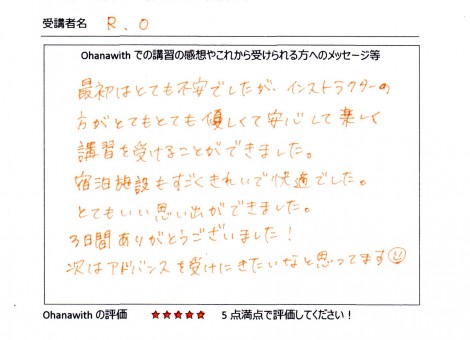 受講者名 R.O
Ohanawith での講習の感想やこれから受けられる方へのメッセージ等
最初はとても不安でしたが、インストラクターの
方がとてもとても優しくて安心して楽しく
講習を受けることができました。
宿泊施設もすごくきれいで快適でした。
とてもいい思い出ができました。
3日間ありがとうございました!
次はアドバンスを受けにきたいなと思ってます
Ohanawith の評価 ★★★★★ 5点満点で評価してください!